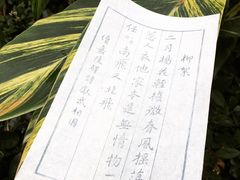 柳絮
二月楊花輕復微春風搖蕩
惹人衣他家本是無情物一
任南飛又北飛